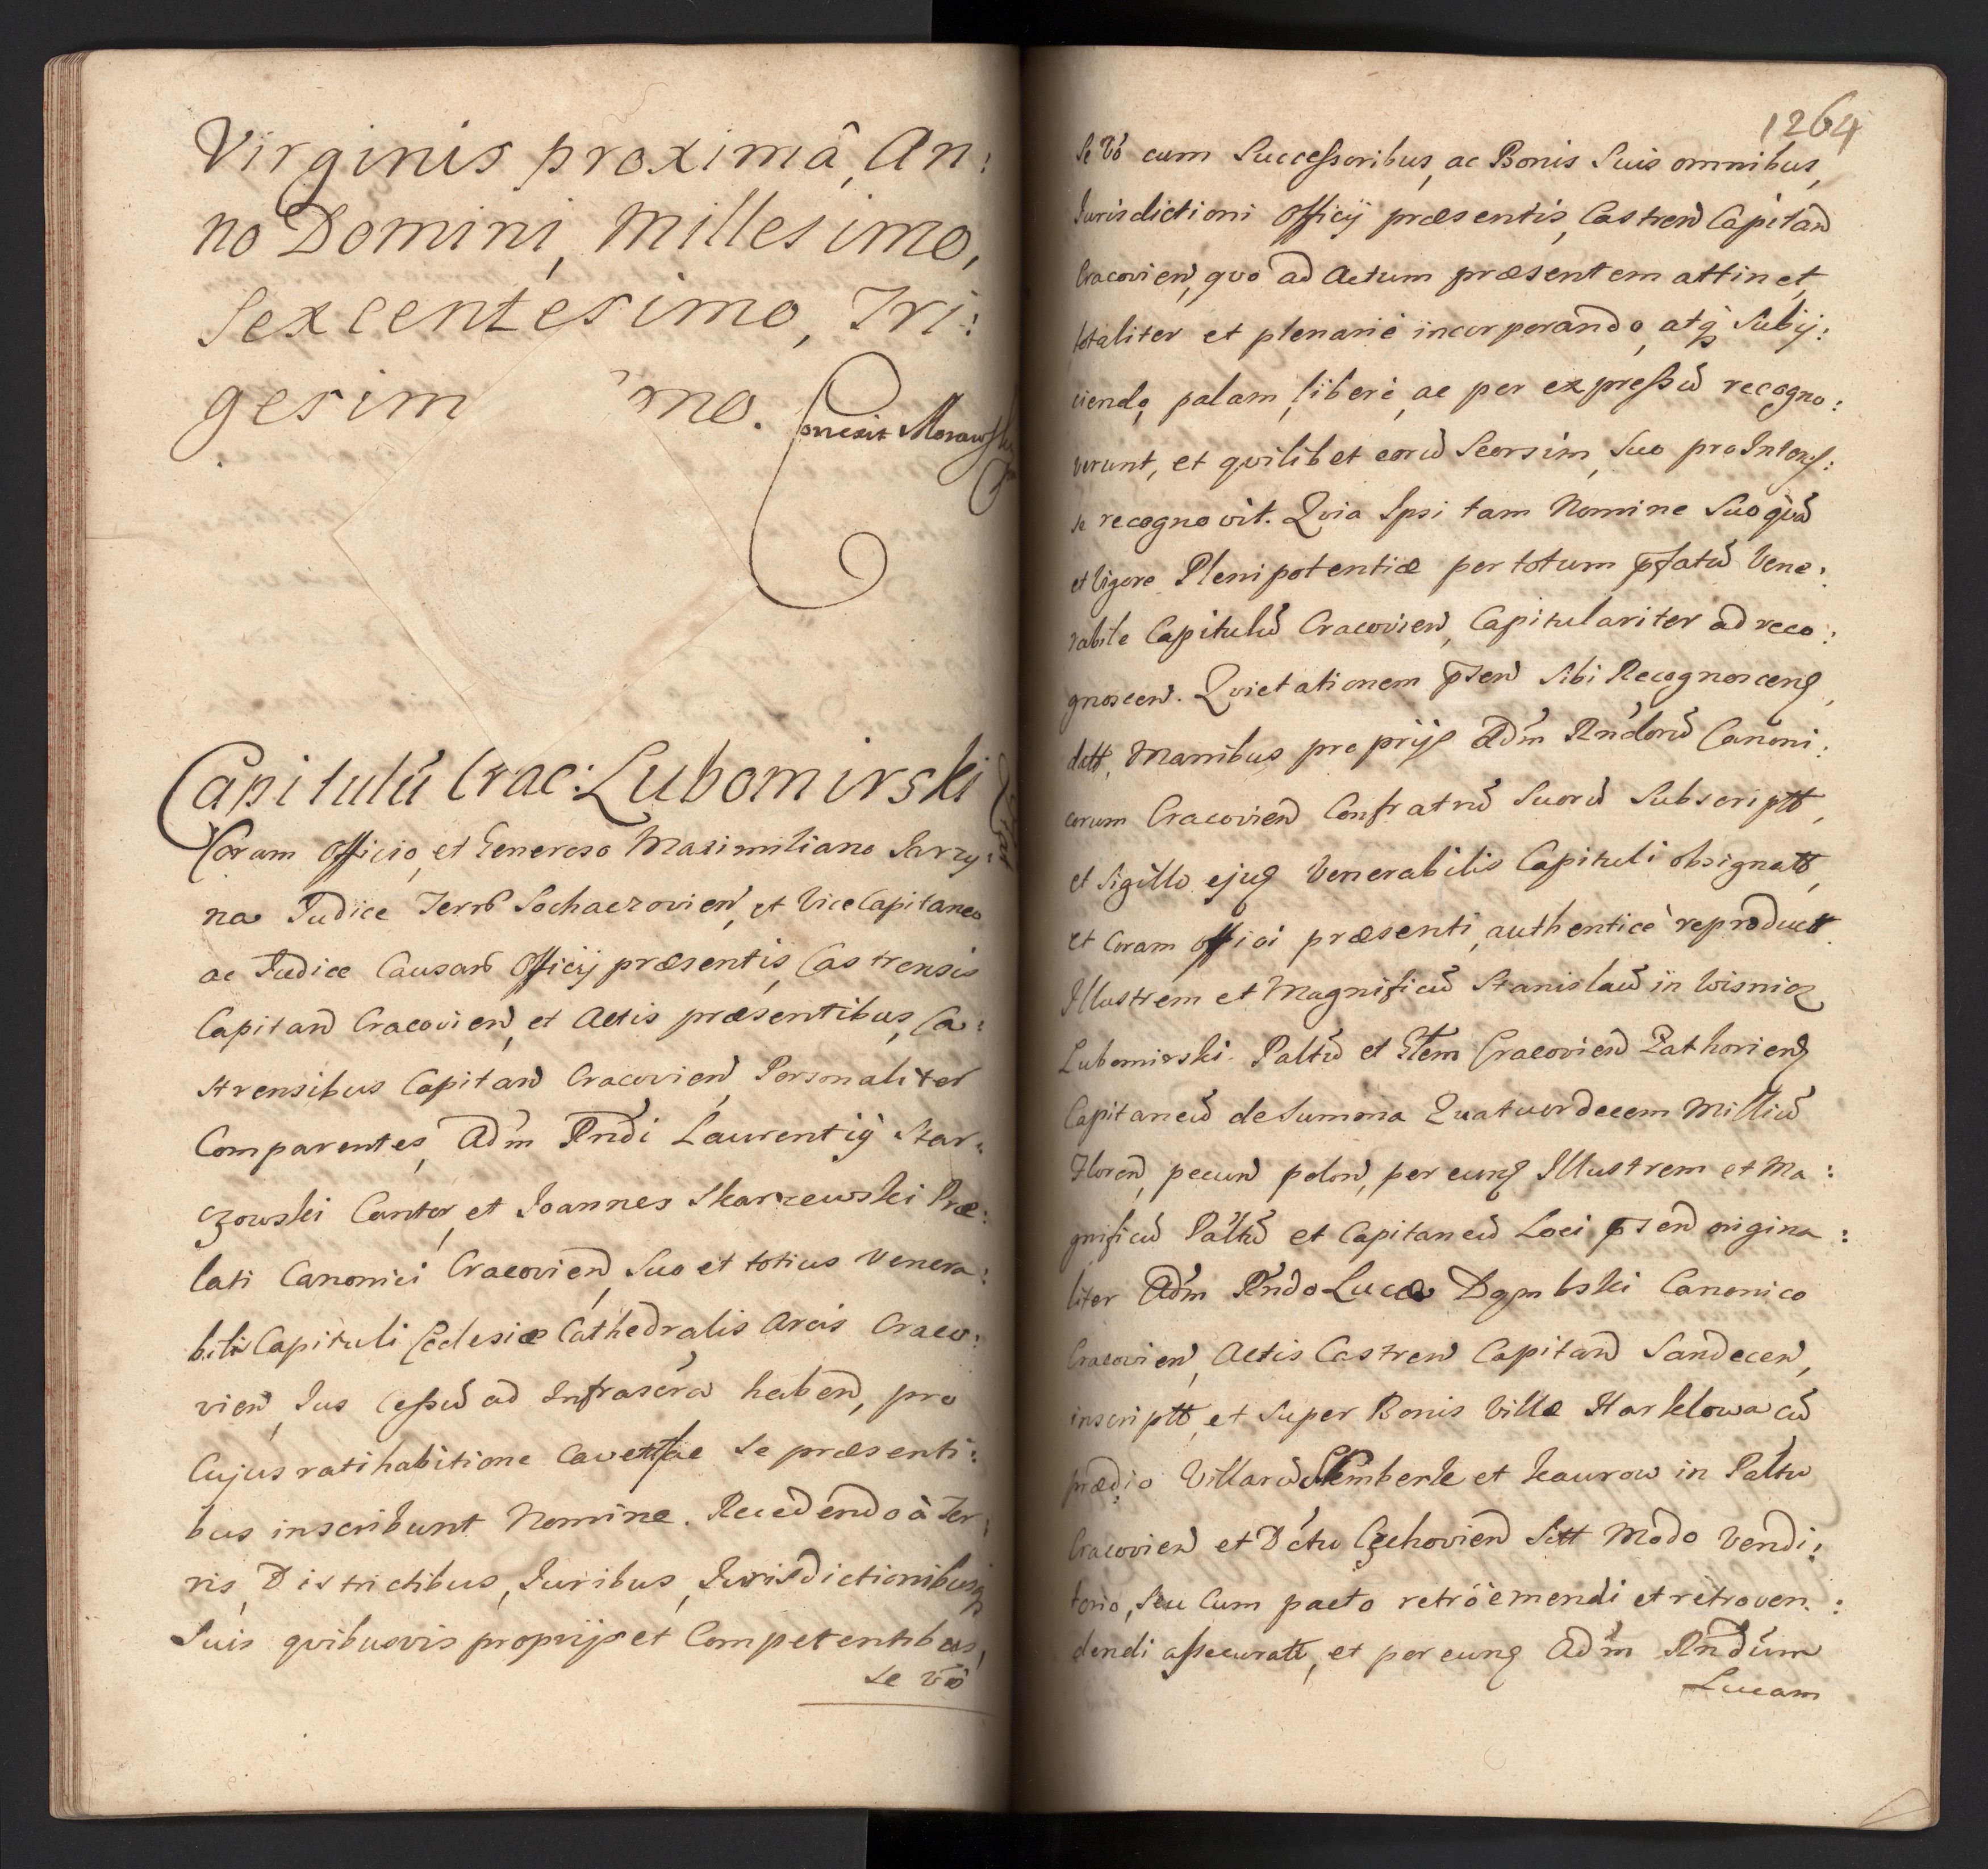 Virginis proximâ, An:
no Domini, Millesimo,
Sexcentesimo, Tri:
gesim mo. Correxit Morawski
Capitulũ Crac: Lubomirski
Coram Officio, et Generoso Maximiliano Jarzy:
na Judice Terrŕ Sochaczovień, et Vice Capitaneo
ac Judice Causarŕ Officij præsentis, Castrensis
Capitań Cracovień, et Actis præsentibus, Ca:
strensibus Capitań Cracovień, Personaliter
Comparentes, Adḿ Rńdi Laurentiy Star:
czowski Cantor, et Joannes Skarzewski Præ:
lati Canonici Cracovień, Suo et totius Venera:
bilis Capituli Ecclesiæ Cathedralis Arcis Craco:
vień, Jus Cessũ ad Infrascŕa habeń, pro
Cujus ratihabitione Cavett se præsenti:
bus inscribunt Nomine. Recedendo à Ter:
ris, Districtibus, Juribus, Jurisdictionibusq
Suis qvibusvis proprijs et Competentibus,
Se vó
1264
Se Vó cum Successoribus, ac Bonis Suis omnibus,
Jurisdictioni Officij præsentis, Castreń Capitań
Cracovień, qvo ad Actum præsentem attinet,
totaliter et plenariè incorporando, atq Subij:
ciendo, palam, liberè, ac per expressũ recogno:
verunt, et qvilibet eorũ Seorsim, Suo pro Inters:
se recognovit. Qvia Ipsi tam Nomine Suo qvã
et Vigore Plenipotentiæ per totum pfatũ Vene:
rabile Capitulũ Cracovień, Capitulariter ad reco:
gnosceń. Qvietationem pseń Sibi Recognosceng,
datt, Manibus proprijs Adḿ Rńdorũ Canoni:
corum Cracovień Confratrũ Suorũ Subscriptt,
et Sigillo ejug Venerabilis Capituli obsignatt,
et Coram offici præsenti authenticè reproductt.
Illustrem et Magnificũ Stanislaũ in Wisnicz
Lubomirski Paltũ et Glem Cracovień Zathorieng
Capitaneũ de Summa Quatuordecem Milliũ
Floreń, pecuń poloń, per eung Illustrem et Ma:
gnificũ Paltũ et Capitaneũ Loci pseń origina:
liter Adḿ Rńdo Lucæ Dąmbski Canonico
Cracovień, Actis Castreń Capitań Sandeceń,
inscriptt, et Super Bonis Villæ Harklowa cũ
prædio Villarũ Szlemberk et Knurow in Paltu
Cracovień et Dćtu Czchovień Sitt Modo Vendi:
torio, Seu Cum pacto retróemendi et retroven:
dendi assecuratt, et per eung Adḿ Rńdum
Lucam